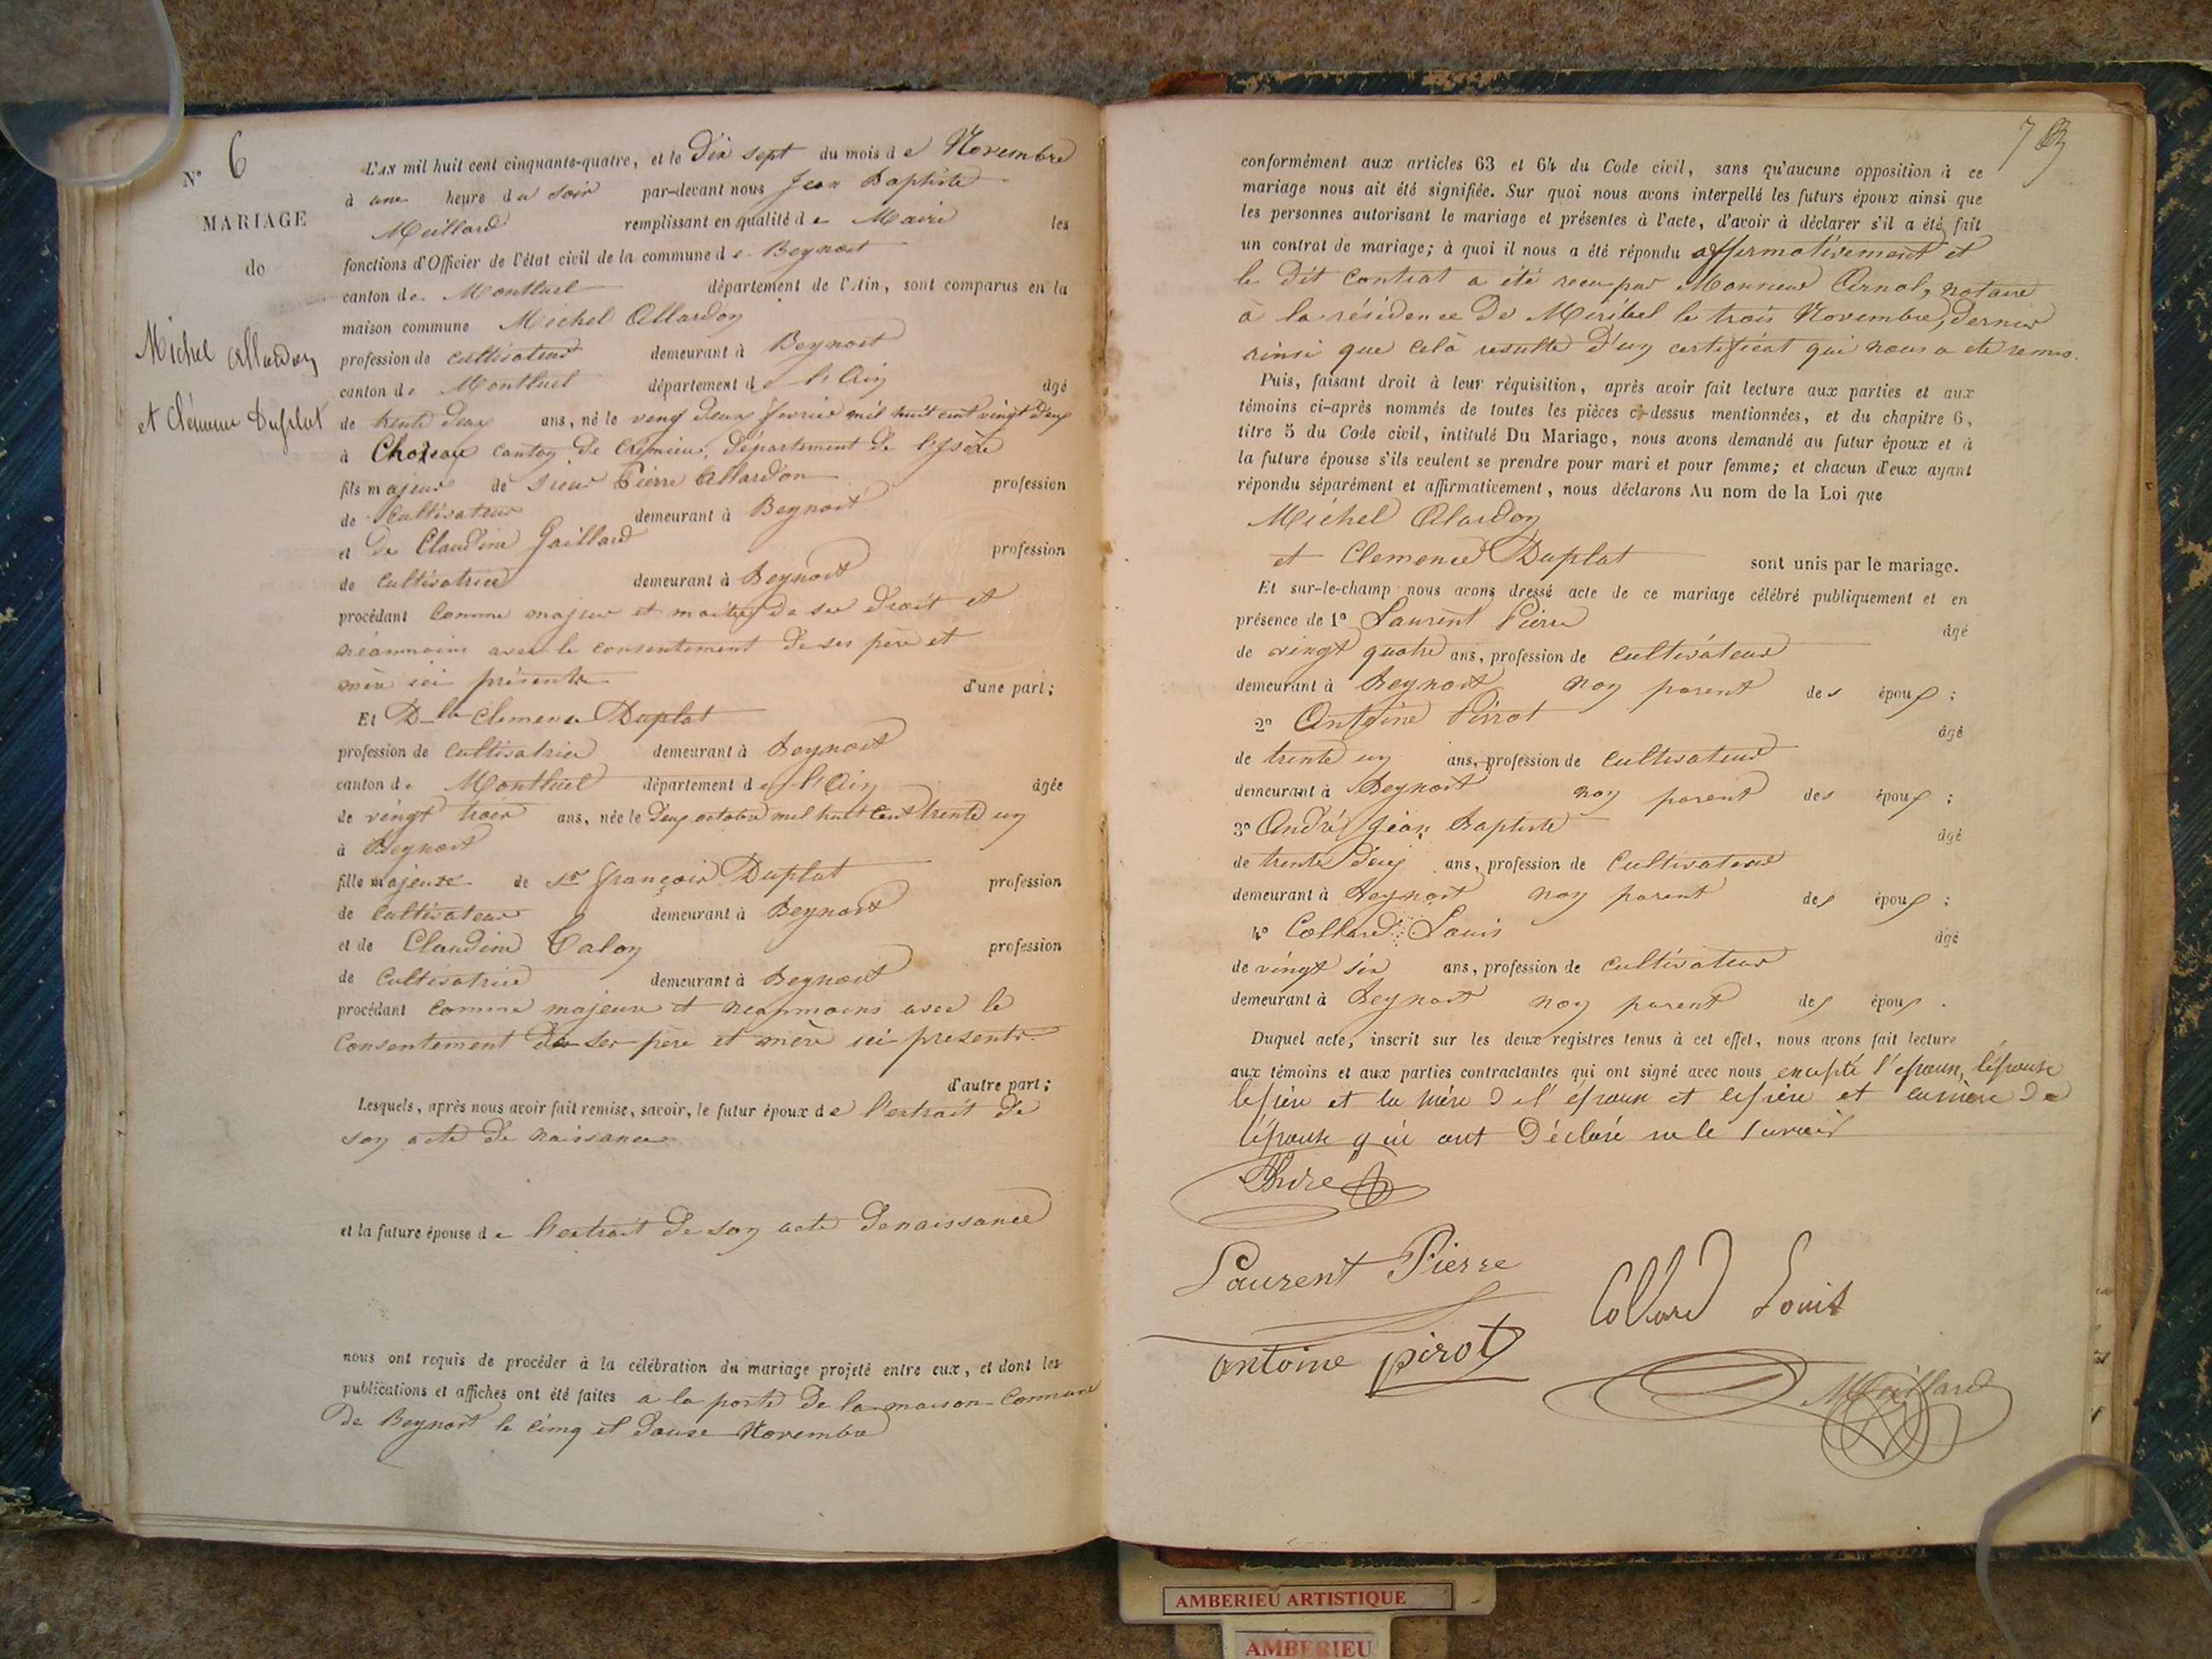 N° 6
MARIAGE
de
Michel Allardon
et Clémence Duplat
L'AN mil huit cent cinquante-quatre, et le Dix sept du mois de Novembre
à une heure du soir par-devant nous Jean Baptiste
Meillard remplissant en qualité de Maire les
fonctions d'Officier de l'état civil de la commune de Beynost
canton de Montluel département de l'Ain, sont comparus en la
maison commune Michel Allardon
profession de cultivateur demeurant à Beynost
canton de Montluel département de l'Ain âgé
de trente deux ans, né le vingt deux fevrier mil huit cent vingt deux
à Chozeau canton de Crémieu, département de l'Isère
fils majeur de sieur Pierre Allardon profession
de cultivateur demeurant à Beynost
et de Claudine Gaillard profession
de cultivatrice demeurant à Beynost
procédant comme majeur et maitre de ses droit et
néanmoins avec le consentement de ses père et
mère ici présents d'une part;
Et Dlle Clemence Duplat
profession de cultivatrice demeurant à Beynost
canton de Montluel département de l'Ain âgée
de vingt trois ans, née le deux octobre mil huit cent trente un
à Beynost
fille majeure de sr françois Duplat profession
de cultivateur demeurant à Beynost
et de Claudine Talon profession
de cultivatrice demeurant à Beynost
procédant comme majeure et neanmoins avec le
consentement de ses père et mère ici presents
d'autre part;
Lesquels, après nous avoir fait remise, savoir, le futur époux de l'extrait de
son acte de naissance
et la future épouse de l'extrait de son acte de naissance
nous ont requis de procéder à la célébration du mariage projeté entre eux, et dont les
publications et affiches ont été faites a la porte de la maison Commune
de Beynost le cinq et douse Novembre
conformément aux articles 63 et 64 du Code civil, sans qu'aucune opposition à ce
mariage nous ait été signifiée. Sur quoi nous avons interpellé les futurs époux ainsi que
les personnes autorisant le mariage et présentes à l'acte, d'avoir à déclarer s'il a été fait
un contrat de mariage; à quoi il nous a été répondu affirmativement et
le dit contrat a été recu par Monsieur notaire
à la résidence de Miribel le trois Novembre, dernier
ainsi que celà resulte d'un certificat qui nous a ete remis.
Puis, faisant droit à leur réquisition, après avoir fait lecture aux parties et aux
témoins ci-après nommés de toutes les pièces ci-dessus mentionnées, et du chapitre 6,
titre 5 du Code civil, intitulé Du Mariage, nous avons demandé au futur époux et à
la future épouse s'ils veulent se prendre pour mari et pour femme; et chacun d'eux ayant
répondu séparément et affirmativement, nous déclarons Au nom de la Loi que
Michel Allardon
et Clemence Duplat sont unis par le mariage.
Et sur-le-champ nous avons dressé acte de ce mariage célébré publiquement et en
présence de 1° Laurent Pierre âgé
de vingt quatre ans, profession de cultivateur
demeurant à Beynost non parent des époux ;
2° Antoine Pirrot âgé
de trente un ans, profession de cultivateur
demeurant à Beynost non parent des époux ;
3° André Jean Baptiste âgé
de trente deux ans, profession de Cultivateur
demeurant à Beynost non parent des époux ;
4° Collard Louis âgé
de vingt six ans, profession de cultivateur
demeurant à Beynost non parent des époux .
Duquel acte, inscrit sur les deux registres tenus à cet effet, nous avons fait lecture
aux témoins et aux parties contractantes qui ont signé avec nous excepté l'epoux, l'épouse
le père et la mère de l'époux et le père et la mère de
l'épouse qui ont Déclaré ne le savoir
André
Laurent Pierre
Collard Louis
antoine pirot
Meillard
AMBERIEU ARTISTIQUE
AMBERIEU